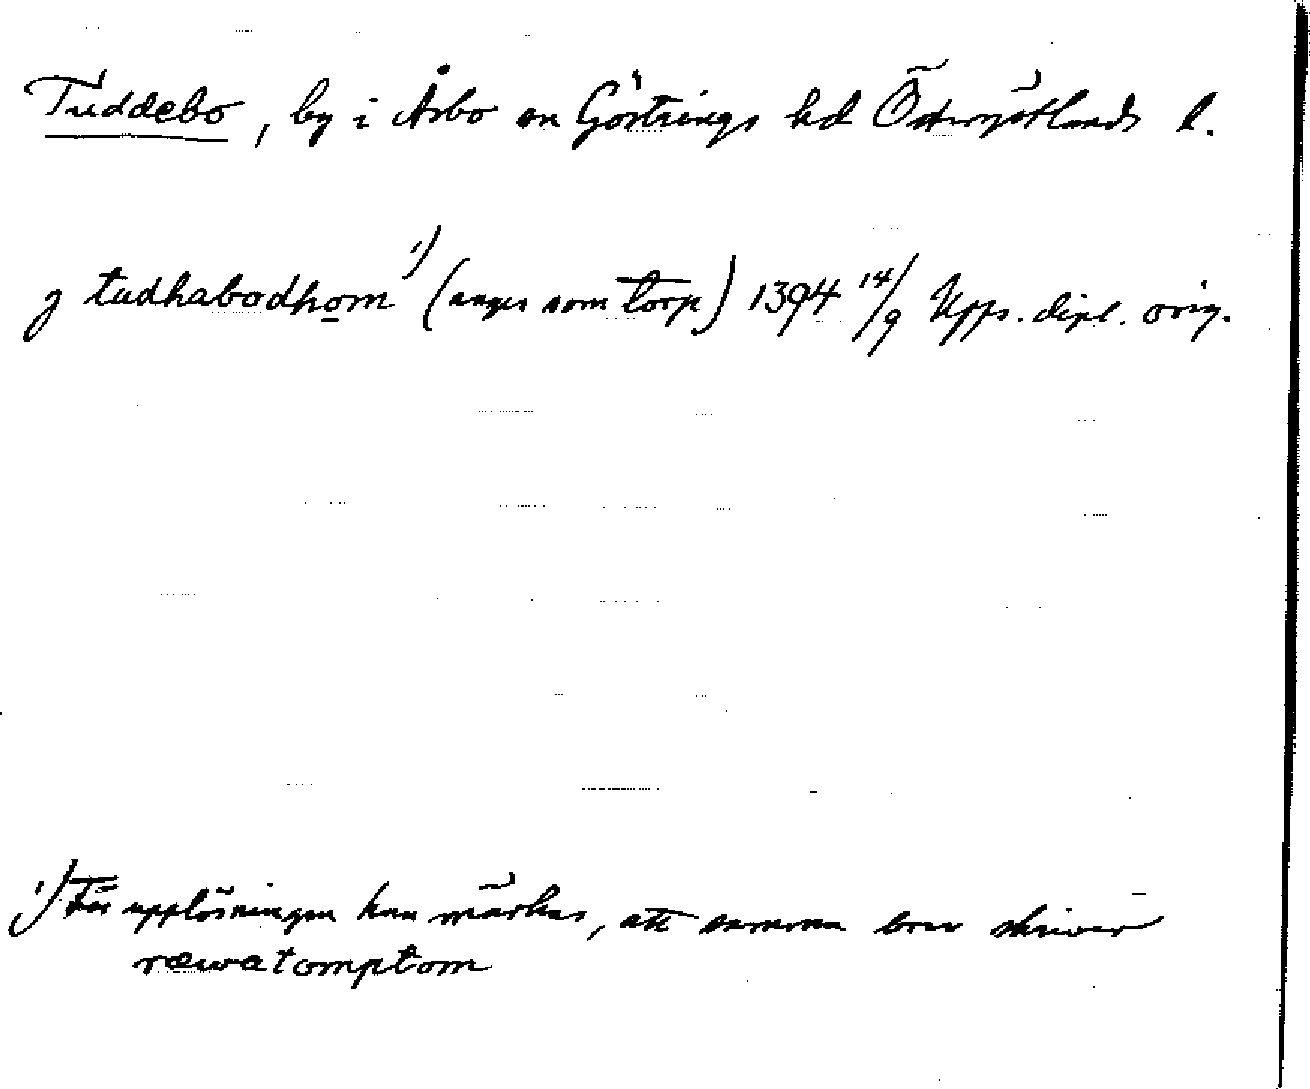 Tuddebo, by i Åsbo sn Göstrings hd Östergötlands l.
j tudhabodhom ¹) (anges som torp) 1394 14/9 Upps. dipl. orig.
¹) För upplösningen kan märkas, att samma brev skriver
ræwatomptom